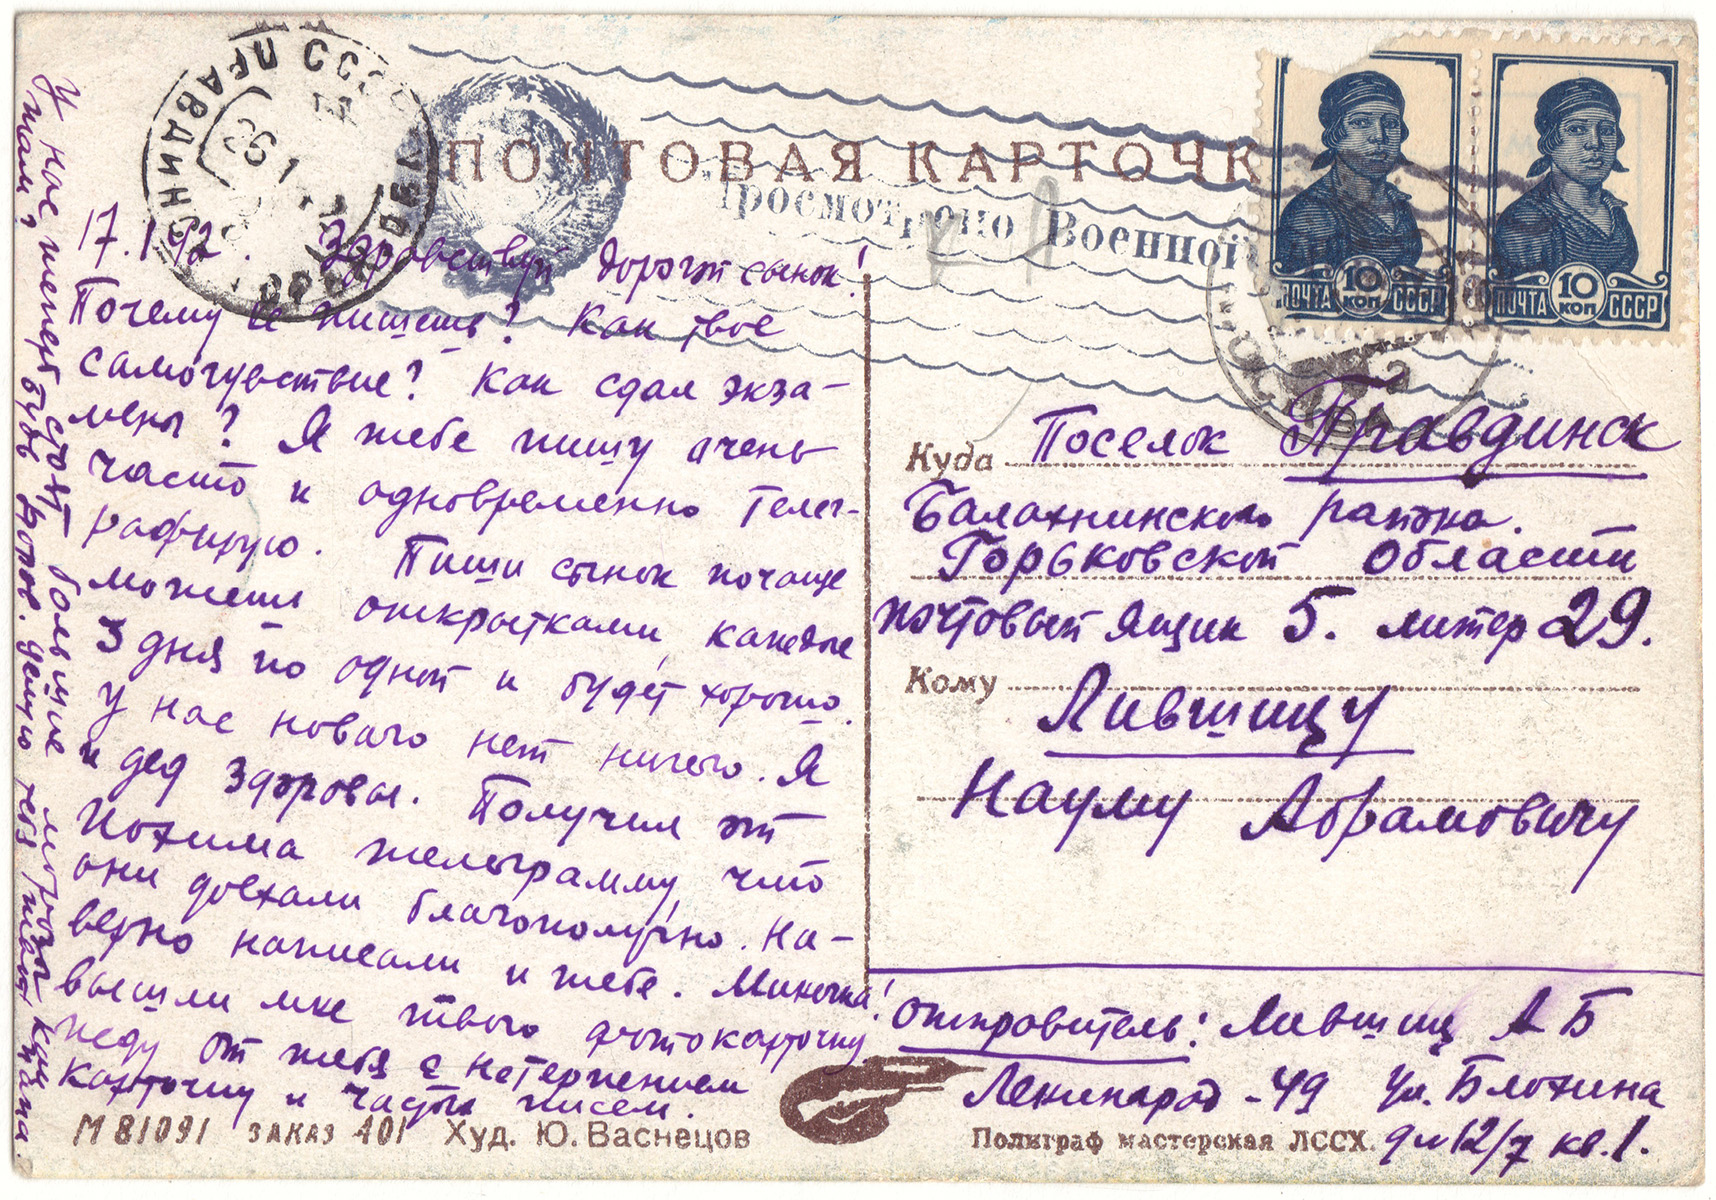 ПОЧТОВАЯ КАРТОЧК
Просмотрено Военной
ПРАВДИНСК
ПОЧТА 10 КОП СССР
ПОЧТА 10 КОП СССР
17.1 42. Здравствуй дорогой сынок!
Почему не пишешь? Как твое
самочувствие? Как сдал экза-
мены? Я тебе пишу очень
часто и одновременно телег-
рафирую. Пиши сынок почаще
можешь открытками, каждые
3 дня по одной и будет хорошо.
У нас новаго нет ничего. Я
и дед здоровы. Получил от
Нохима телеграмму что
они доехали благополучно. На-
верно написали и тебе. Миночка!
вышли мне твою фотокарточку
жду от тебя с нетерпением
карточку и частых писем.
У нас теперь стоят большие морозы как
там? Будь здоров. целую тебя твой папа.
Куда Поселок Правдинск
Балахнинского района.
Горьковской области
почтовый ящик 5. литер 29.
Кому Лившицу
Науму Абрамовичу
отправитель: Лившиц А Б
Ленинград - 49 ул. Блохина
дом 12/7 кв. 1.
М 81091 ЗАКАЗ 401 Худ. Ю. Васнецов
Полиграф мастерская ЛССХ.